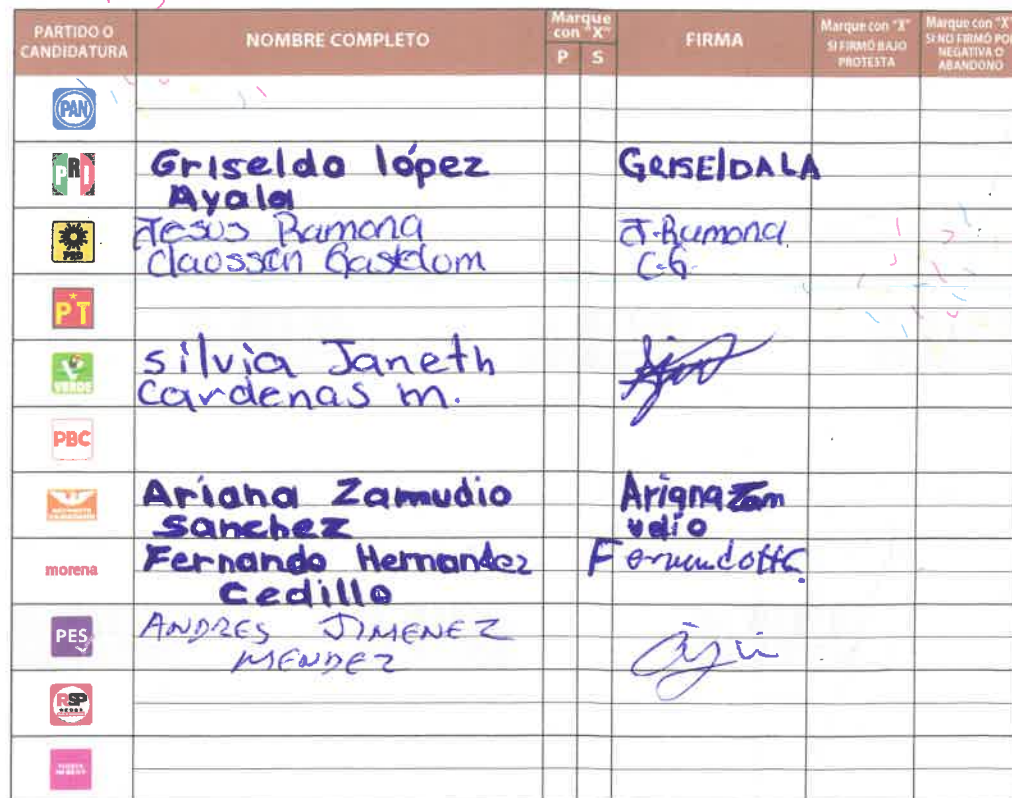 PARTIDO O CANDIDATURA
NOMBRE COMPLETO
Marque con "X"
P S
FIRMA
Marque con "X" SI FIRMÓ BAJO PROTESTA
Marque con "X" SI NO FIRMÓ POR NEGATIVA O ABANDONO
PAN
PRI
Griselda lópez
Ayala
GRISElDA LA
PRD
Jesus Ramona
Claossen Gastelom
J. Ramona
C.G.
PT
VERDE
silvia Janeth
Cardenas m.
PBC
Ariana Zamudio
Sanchez
Ariana Zam
udio
morena
Fernando Hernandez
Cedillo
PES
ANDRES JIMENEZ
MENDEZ
RSP